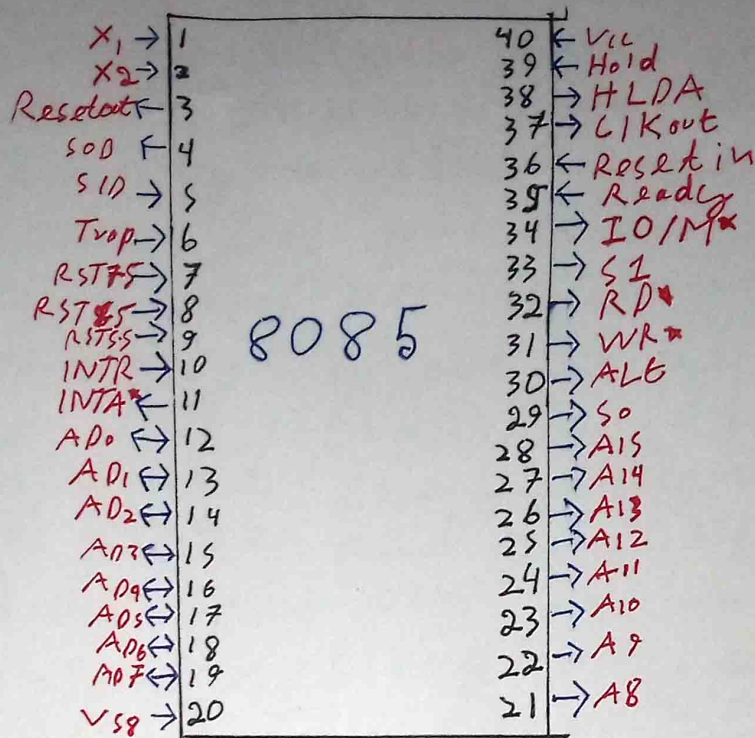 X1 → 1
X2 → 2
Resetout ← 3
SOD ← 4
SID → 5
Trap → 6
RST75 → 7
RST65 → 8
RST5.5 → 9
INTR → 10
INTA* ← 11
AD0 ↔ 12
AD1 ↔ 13
AD2 ↔ 14
AD3 ↔ 15
AD4 ↔ 16
AD5 ↔ 17
AD6 ↔ 18
AD7 ↔ 19
VSS → 20
8085
40 ← Vcc
39 ← Hold
38 → HLDA
37 → ClKout
36 ← Reset in
35 ← Ready
34 → IO/M*
33 → S1
32 → RD*
31 → WR*
30 → ALE
29 → S0
28 → A15
27 → A14
26 → A13
25 → A12
24 → A11
23 → A10
22 → A9
21 → A8